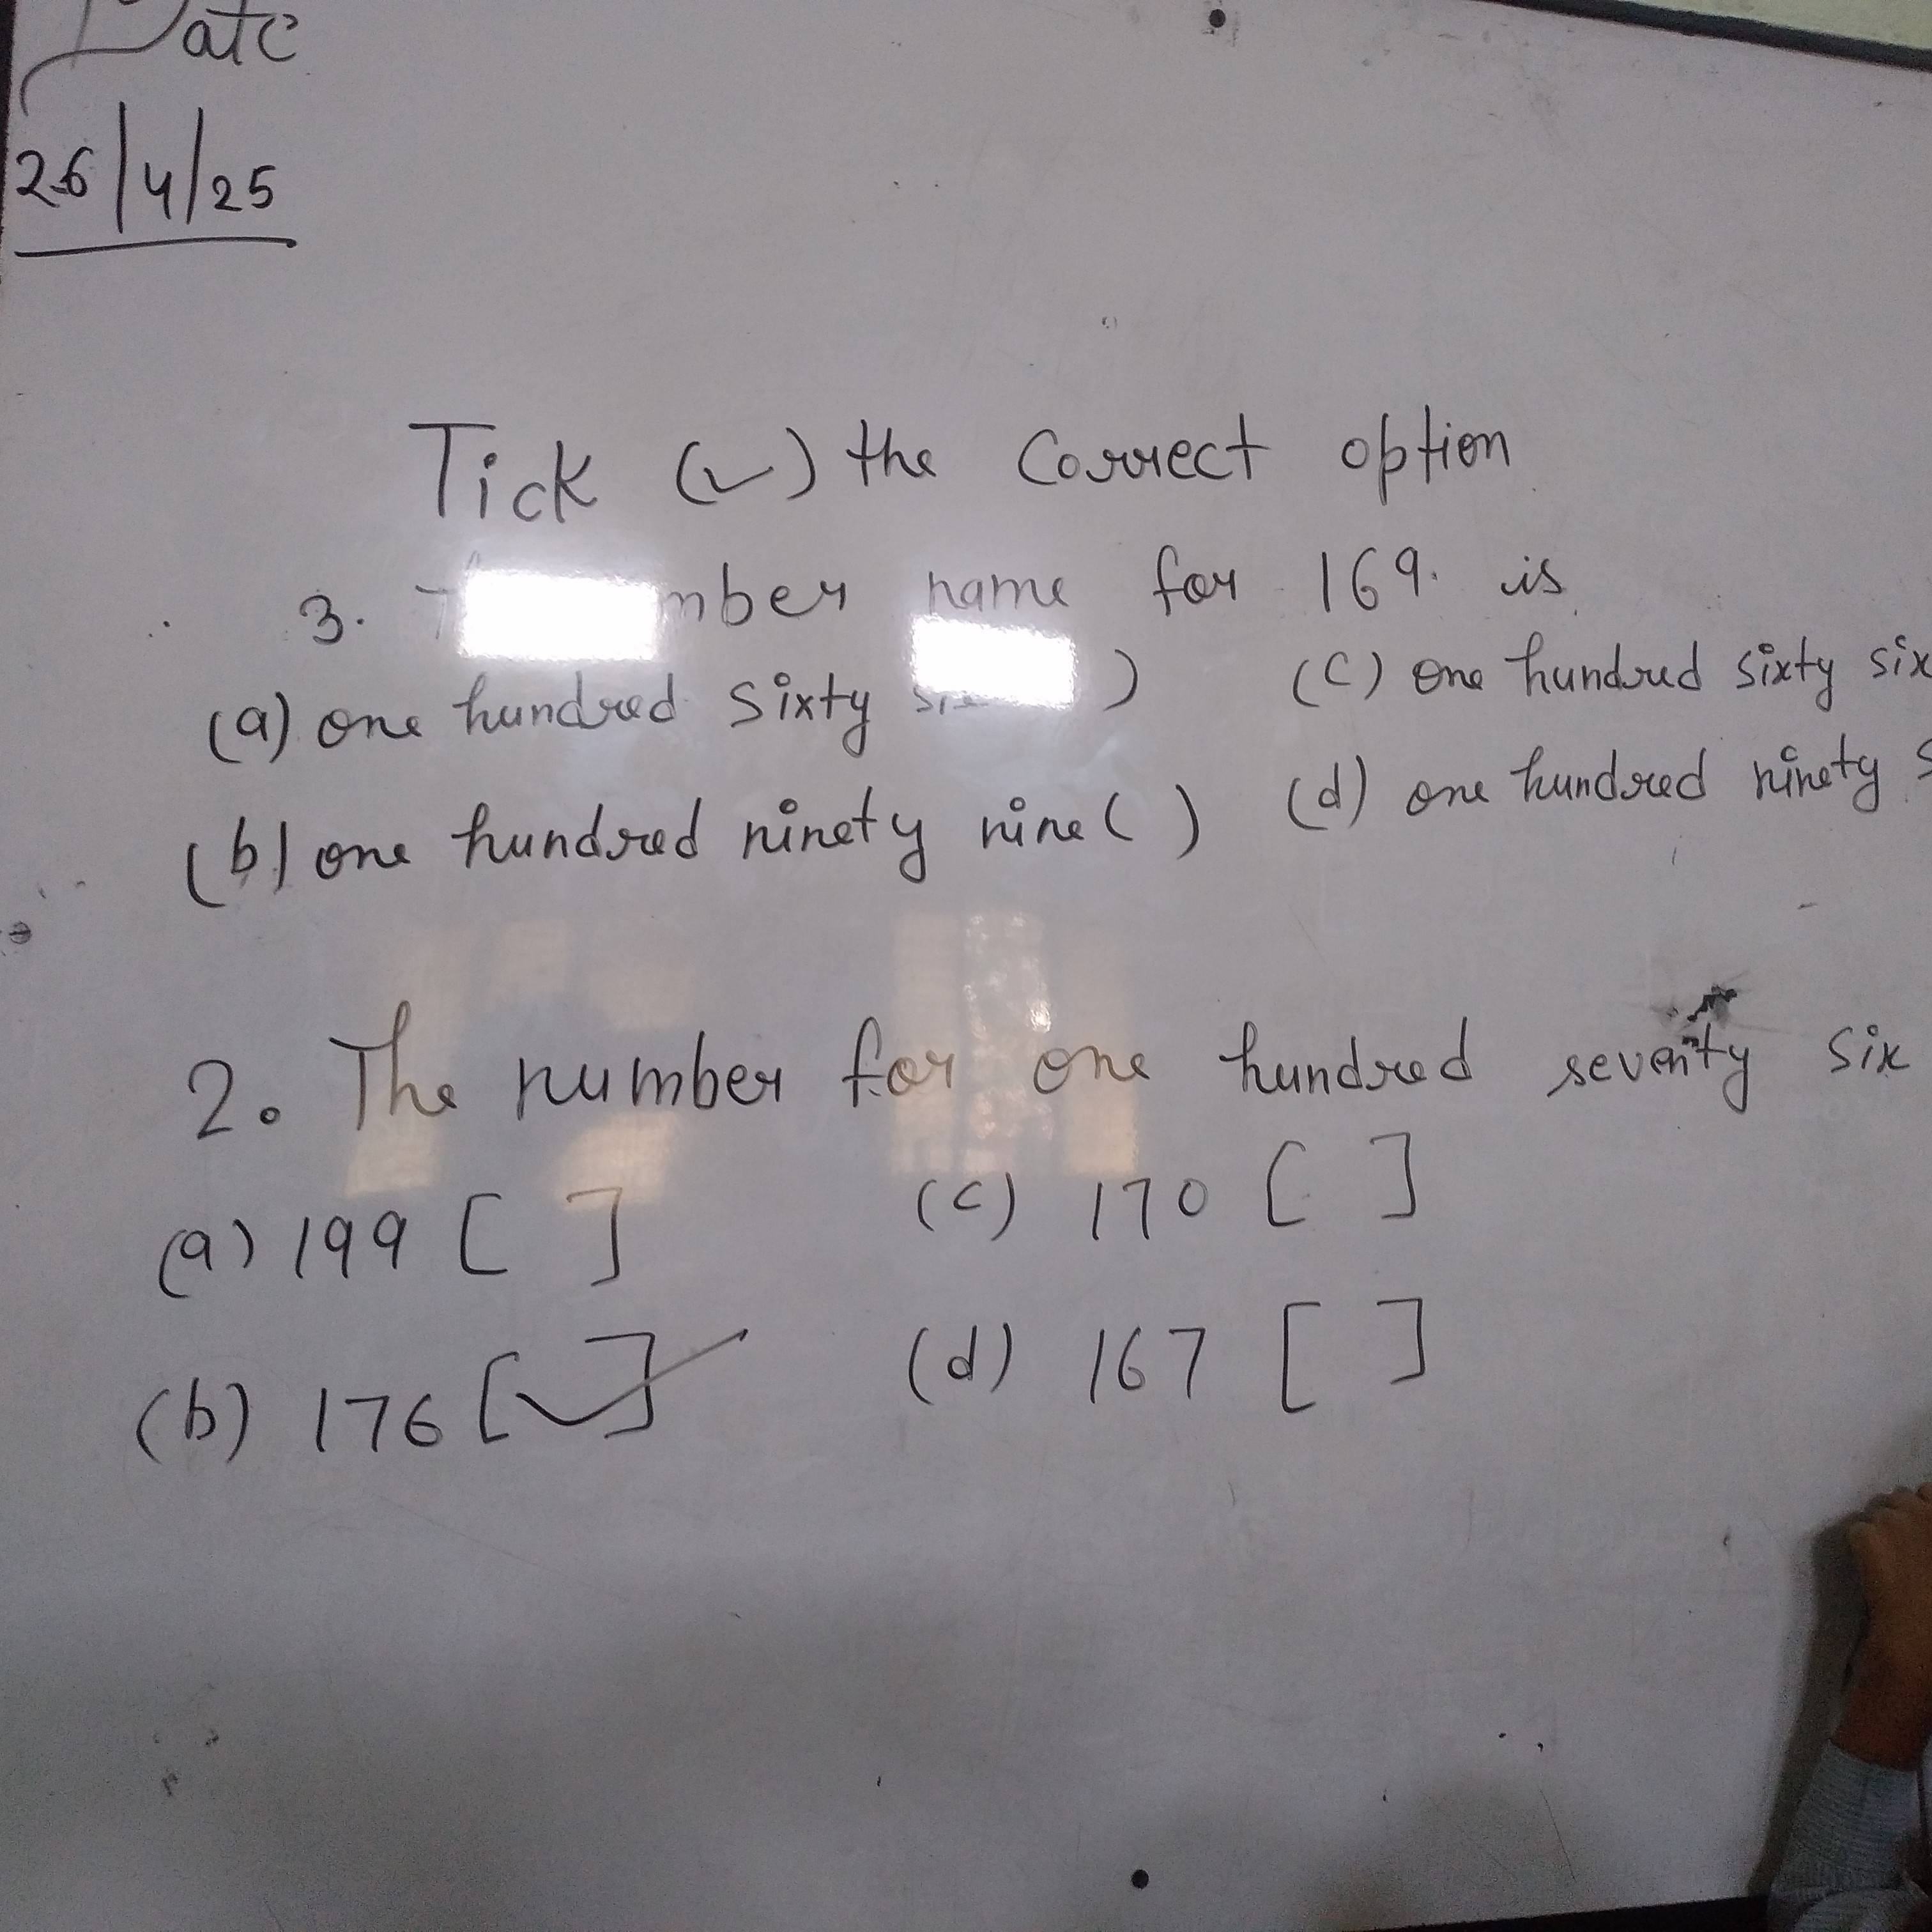 Date
26/4/25
Tick (✓) the correct option
3. name for 169. is
(a) one hundred sixty ) (c) one hundred sixty six
(b) one hundred ninety nine ( ) (d) one hundred ninety
2. The number for one hundred seventy six
(a) 199 [ ] (c) 170 [ ]
(b) 176 [✓] (d) 167 [ ]